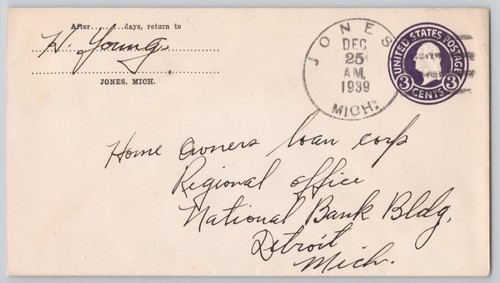 After........days, return to
H. Young
JONES, MICH.
JONES
DEC
25
AM
1939
MICH.
UNITED STATES POSTAGE
3 CENTS 3
Home Owners loan corp
Regional office
National Bank Bldg.
Detroit
Mich.